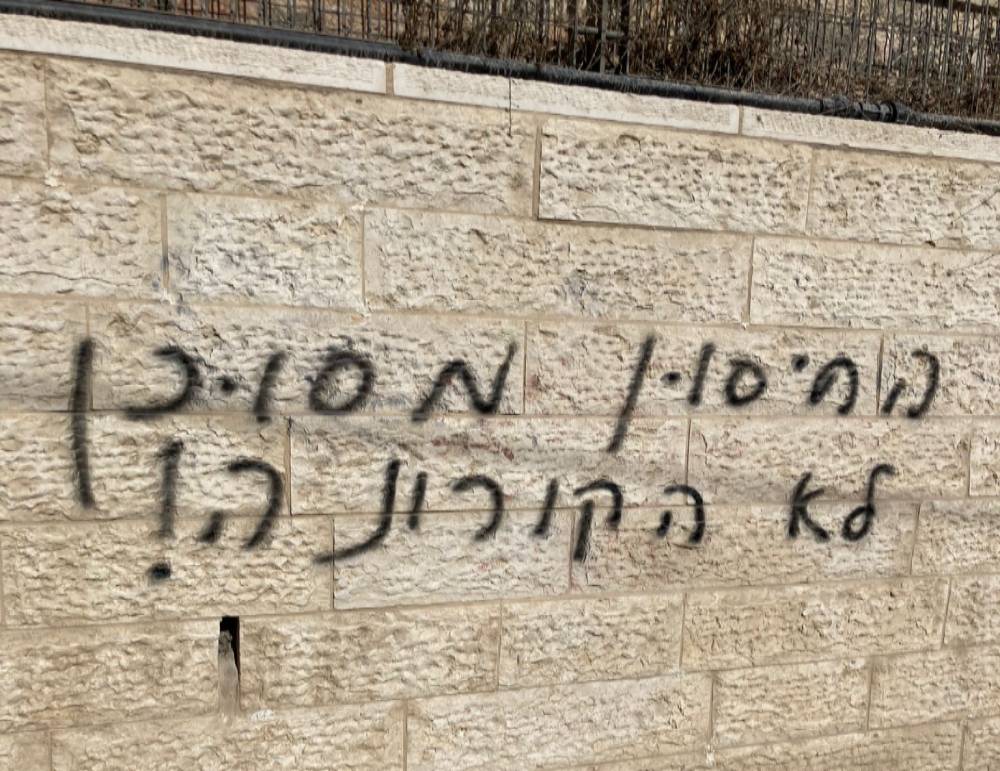 החיסון מסוכן
לא הקורונה!